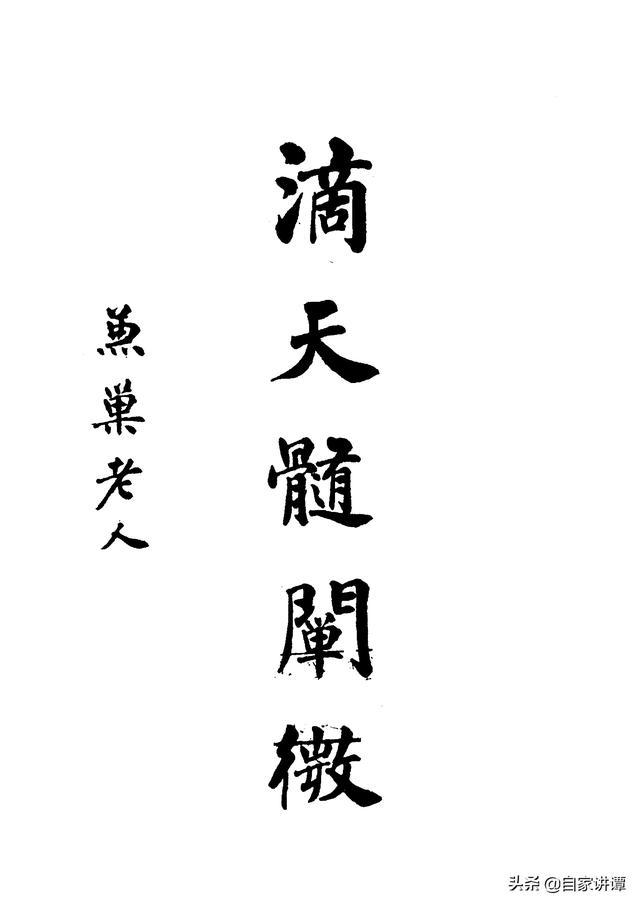 滴天髓闡微
巢老人
头条 @自家讲谭